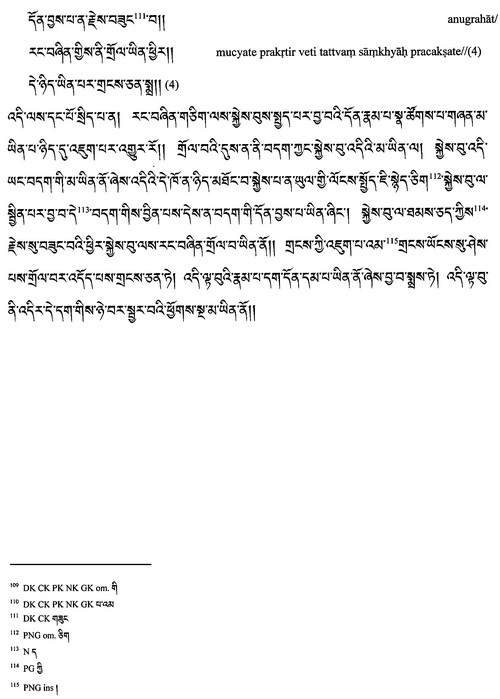 དོན་བྱས་པ་ན་རྗེས་བཟུང་111་བ།། anugrahāt/
རང་བཞིན་གྱིས་ནི་གྲོལ་ཡིན་ཕྱིར།། mucyate prakṛtir veti tattvaṃ sāṃkhyāḥ pracakṣate//(4)
དེ་ཉིད་ཡིན་པར་གྲངས་ཅན་སྨྲ།། (4)
འདི་ལས་དང་པོ་སྲིད་པ་ན། རང་བཞིན་གཅིག་ལས་སྐྱེས་བུས་སྤྱད་པར་བྱ་བའི་དོན་རྣམ་པ་སྣ་ཚོགས་པ་གཞན་མ་
ཡིན་པ་ཉིད་དུ་འཇུག་པར་འགྱུར་རོ།། གྲོལ་བའི་དུས་ན་ནི་བདག་ཀྱང་སྐྱེས་བུ་འདིའི་མ་ཡིན་ལ། སྐྱེས་བུ་འདི་
ཡང་བདག་གི་མ་ཡིན་ནོ་ཞེས་འདིའི་དེ་ཁོ་ན་ཉིད་མཐོང་བ་སྐྱེས་པ་ན་ཡུལ་གྱི་ལོངས་སྤྱོད་ཇི་སྙེད་ཅིག་112་སྐྱེས་བུ་ལ་
སྦྱིན་པར་བྱ་བ་དེ་113་བདག་གིས་བྱིན་པས་དེས་ན་བདག་གི་དོན་བྱས་པ་ཡིན་ཞིང་། སྐྱེས་བུ་ལ་ཐམས་ཅད་ཀྱིས་114་
རྗེས་སུ་བཟུང་བའི་ཕྱིར་སྐྱེས་བུ་ལས་རང་བཞིན་གྲོལ་བ་ཡིན་ནོ།། གྲངས་ཀྱི་འཇུག་པ་འམ་115གྲངས་ཡོངས་སུ་ཤེས་
པས་གྲོལ་བར་འདོད་པས་གྲངས་ཅན་ཏེ། འདི་ལྟ་བུའི་རྣམ་པ་དག་དོན་དམ་པ་ཡིན་ནོ་ཞེས་བྱ་བ་སྨྲས་ཏེ། འདི་ལྟ་བུ་
ནི་འདིར་དེ་དག་གིས་ཉེ་བར་སྦྱར་བའི་ཕྱོགས་སྔ་མ་ཡིན་ནོ།།
109 DK CK PK NK GK om. གི
110 DK CK PK NK GK པ་འམ
111 DK CK གཟུང
112 PNG om. ཅིག
113 N ད
114 PG ཀྱི
115 PNG ins །